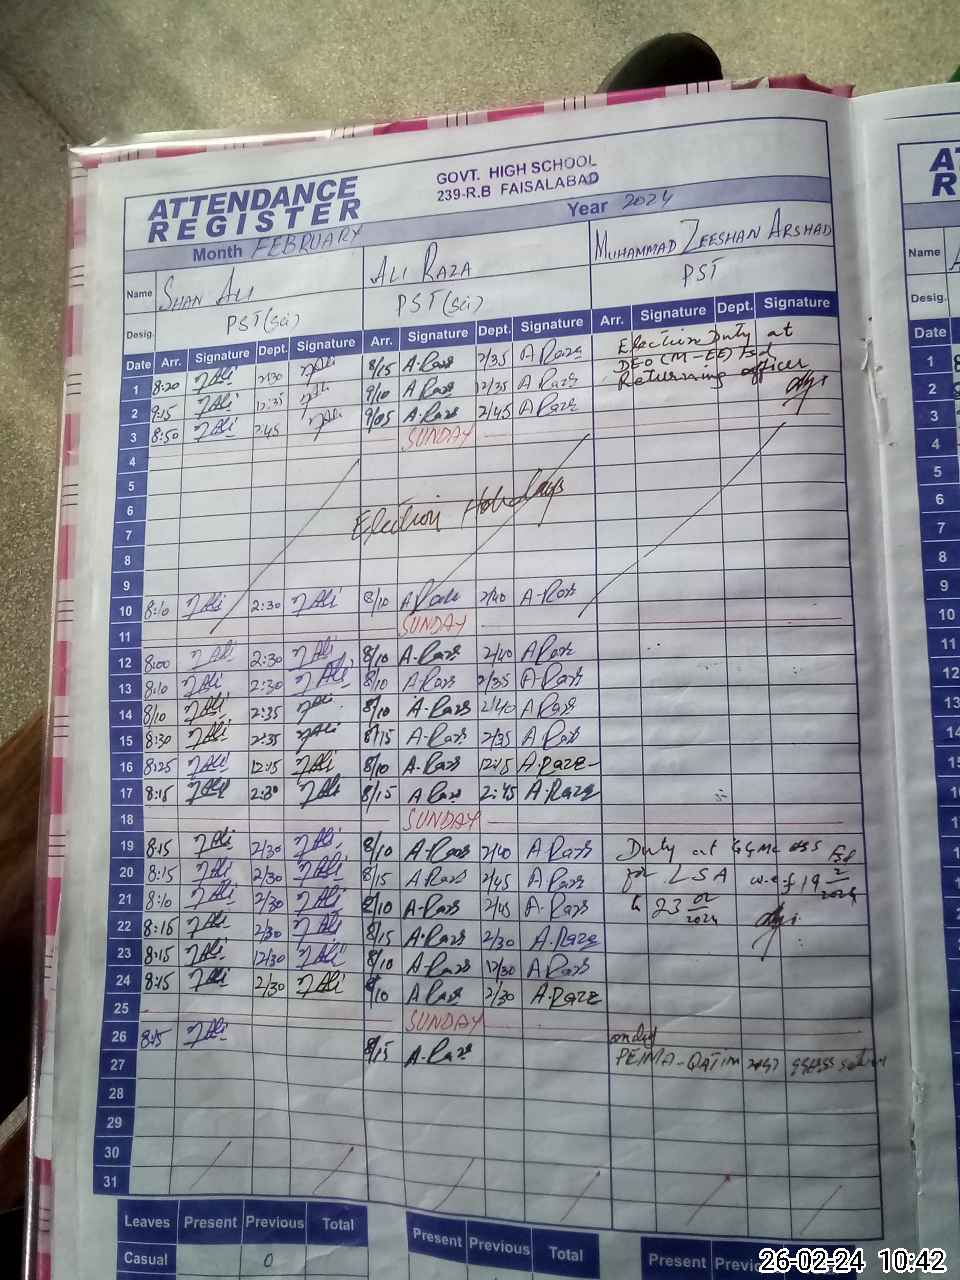 GOVT. HIGH SCHOOL
239-R.B FAISALABAD
ATTENDANCE
REGISTER
Month FEBRUARY Year 2024
Name SHAN ALI ALI RAZA MUHAMMAD ZEESHAN ARSHAD
Desig. PST(sci) PST(sci) PST
Date Arr. Signature Dept. Signature Arr. Signature Dept. Signature Arr. Signature Dept. Signature
1 8:20 Ali 2:30 Ali 8/15 A-Raza 2/35 A Raza Election Duty at
DEO (M-EE) Fsd
2 9:15 Ali 12:35 Ali 9/10 A-Raza 12/35 A Raza Returning officer
3 8:50 Ali 2:45 Ali 9/05 A-Raza 2/45 A Raza
4 SUNDAY
5
6
7 Election Holidays
8
9
10 8:10 Ali 2:30 Ali 8/10 A Raza 2/40 A-Raza
11 SUNDAY
12 8:00 Ali 2:30 Ali 8/10 A-Raza 2/40 A Raza
13 8:10 Ali 2:30 Ali 8/10 A Raza 2/35 A-Raza
14 8/10 Ali 2:35 Ali 8/10 A-Raza 2/40 A Raza
15 8:30 Ali 2:35 Ali 8/15 A-Raza 2/35 A Raza
16 8:25 Ali 12:15 Ali 8/10 A-Raza 12:15 A-Raza
17 8:15 Ali 2:30 Ali 8/15 A Raza 2:45 A-Raza
18 SUNDAY
19 8:15 Ali 2/30 Ali 8/10 A-Raza 2/40 A Raza Duty at Fsd
20 8:15 Ali 2/30 Ali 8/15 A Raza 2/45 A Raza for LSA w.e.f 19 2/2024
21 8:10 Ali 2/30 Ali 8/10 A-Raza 2/45 A-Raza 23 02/2024
22 8:16 Ali 2/30 Ali 8/15 A-Raza 2/30 A-Raza
23 8:15 Ali 12/30 Ali 8/10 A-Raza 12/30 A Raza
24 8:15 Ali 2/30 Ali 8/10 A Raza 2/30 A-Raza
25 SUNDAY
26 8:15 Ali 8/15 A-Raza
27 PEIMA-QATIM
28
29
30
31
Leaves Present Previous Total Present Previous Total Present
Casual 0
Name
Desig.
Date
1
2
3
4
5
6
7
8
9
10
11
12
13
14
15
26-02-24 10:42